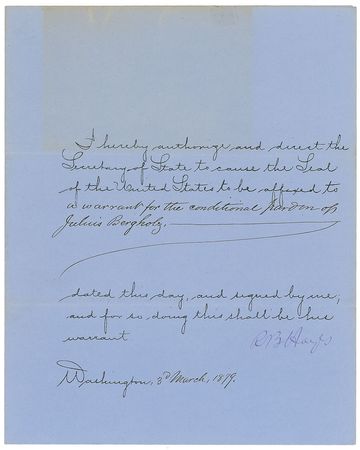 I hereby authorize and direct the
Secretary of State to cause the Seal
of the United States to be affixed to
a warrant for the conditional pardon of
Julius Bergholz,
dated this day, and signed by me;
and for so doing this shall be his
warrant
R B Hayes
Washington, 3d March, 1879.